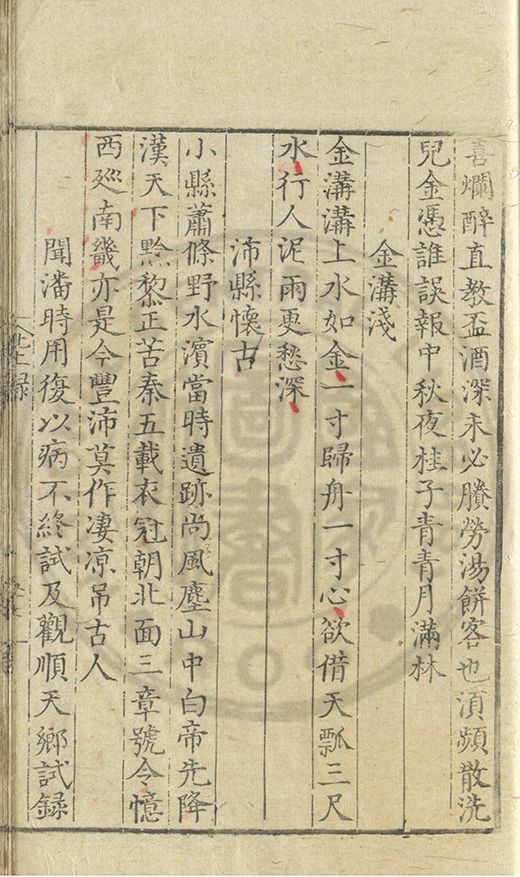 喜爛醉直教盃酒深未必賸勞湯餅客也須頻散洗
兒金憑誰誤報中秋夜桂子青青月滿林
金溝淺
金溝溝上水如金一寸歸舟一寸心欲借天瓢三尺
水行人泥雨更愁深
沛縣懷古
小縣蕭條野水濱當時遺跡尚風塵山中白帝先降
漢天下黔黎正苦秦五載衣冠朝北面三章號令憶
西廵南畿亦是今豐沛莫作凄凉吊古人
聞潘時用復以病不終試及觀順天鄉試録